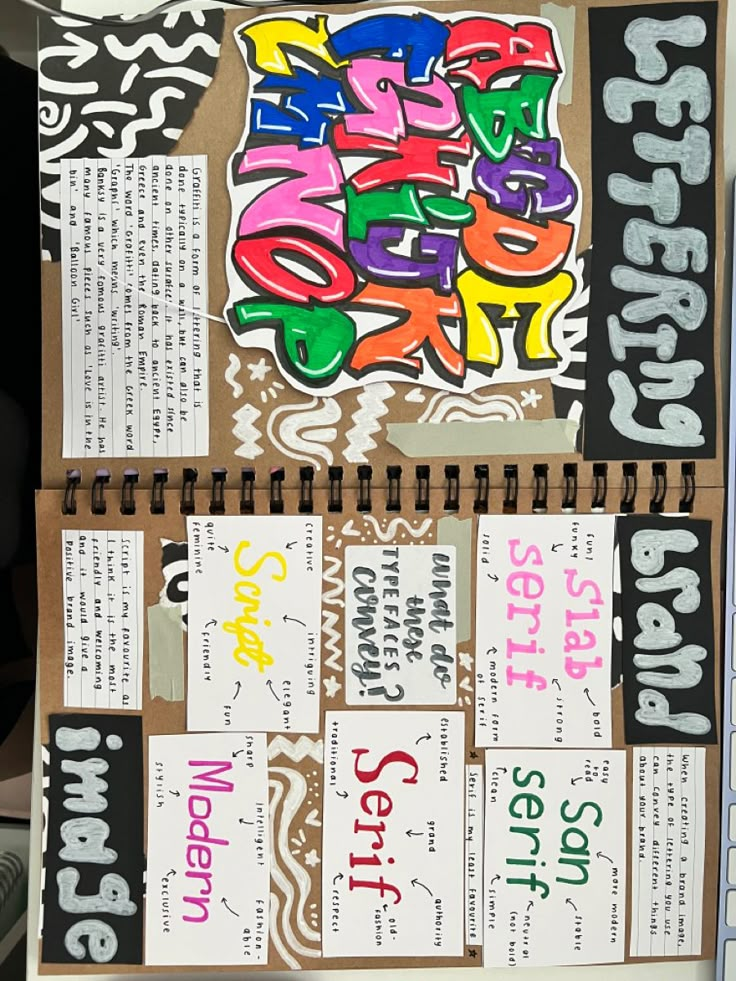 LETTERING
A B C D E
F G H i J K
L M N O P
Graffiti is a form of lettering that is
done typically on a wall, but can also be
done on other surface'. It has existed since
ancient times dating back to ancient Egypt,
Greece and even the Roman Empire.
The word 'Grafitti' comes from the Greek word
'Graphi' which means 'writing'.
Banksy is a very famous graffiti artist. He has
many famous pieces such as 'Love is in the
bin' and 'Balloon Girl'
brand
image
When creating a brand image,
the type of lettering you use
can convey different things
about your brand.
Slab
serif
fun/
funky
bold
strong
solid
modern form
of serif
San
serif
easy
to
read
more modern
stable
clean
simple
neutral
(not bold)
Serif is my least favourite
what do
these
TYPEFACES
convey?
Serif
established
grand
authority
traditional
old-
fashion
respect
Script
creative
intriguing
elegant
quite
feminine
friendly
fun
Modern
sharp
intelligent
fashion-
able
stylish
exclusive
Script is my favourite as
I think it is the most
friendly and welcoming
and it would give a
positive brand image.